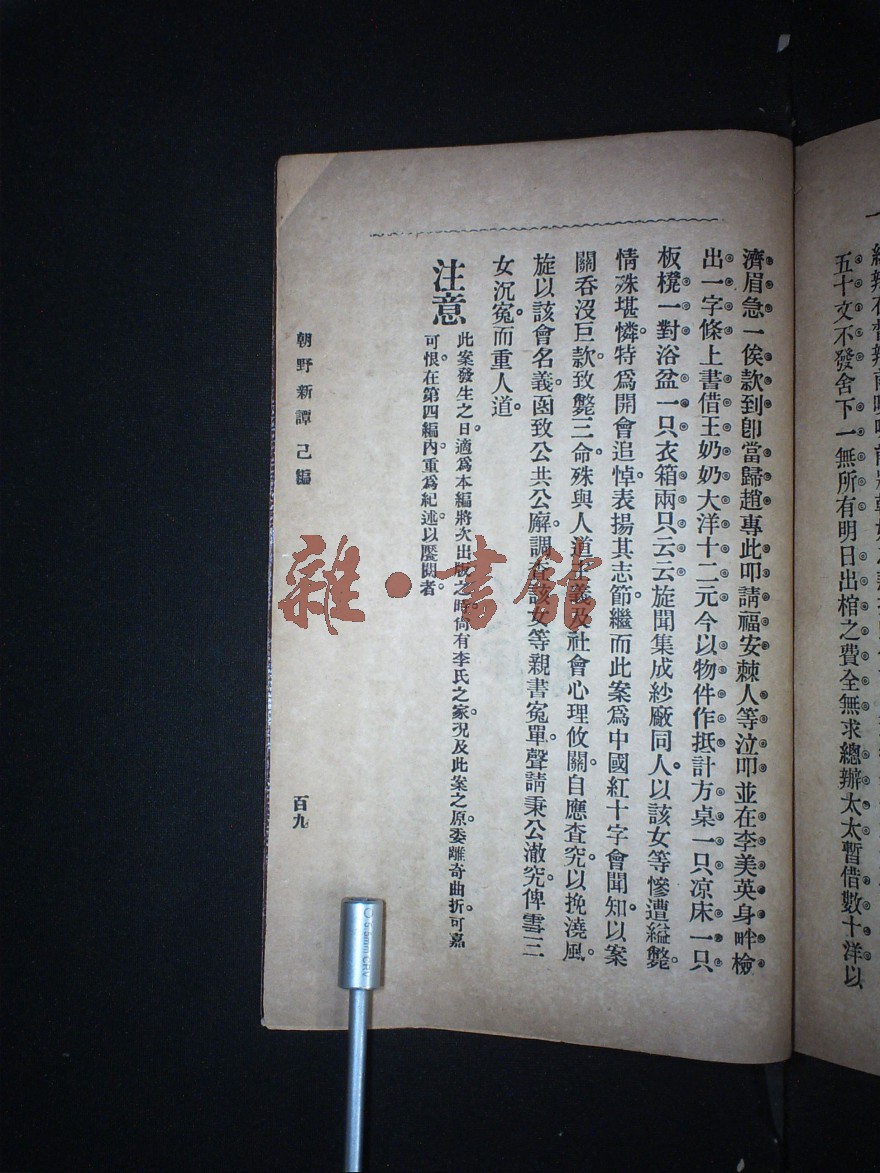 五十文不發舍下一無所有明日出棺之費全無求總辦太太暫借數十洋以
濟眉急一俟款到卽當歸趙專此叩請福安棘人等泣叩並在李美英身畔檢
出一字條上書借王奶奶大洋十二元今以物件作抵計方桌一只凉床一只
板櫈一對浴盆一只衣箱兩只云云旋聞集成紗廠同人。以該女等慘遭縊斃。
情殊堪憐。特爲開會追悼。表揚其志節。繼而此案爲中國紅十字會聞知。以案
關吞沒巨款。致斃三命。殊與人道主義及社會心理攸關。自應查究。以挽澆風。
旋以該會名義。函致公共公廨。調查該女等親書寃單。聲請秉公澈究。俾雪三
女沉寃。而重人道。
注意
此案發生之日。適爲本編將次出版之時。尙有李氏之家況及此案之原委。離奇曲折。可嘉
可恨。在第四編內。重爲紀述。以饜閱者。
朝野新譚 己編
百九
雜·書館